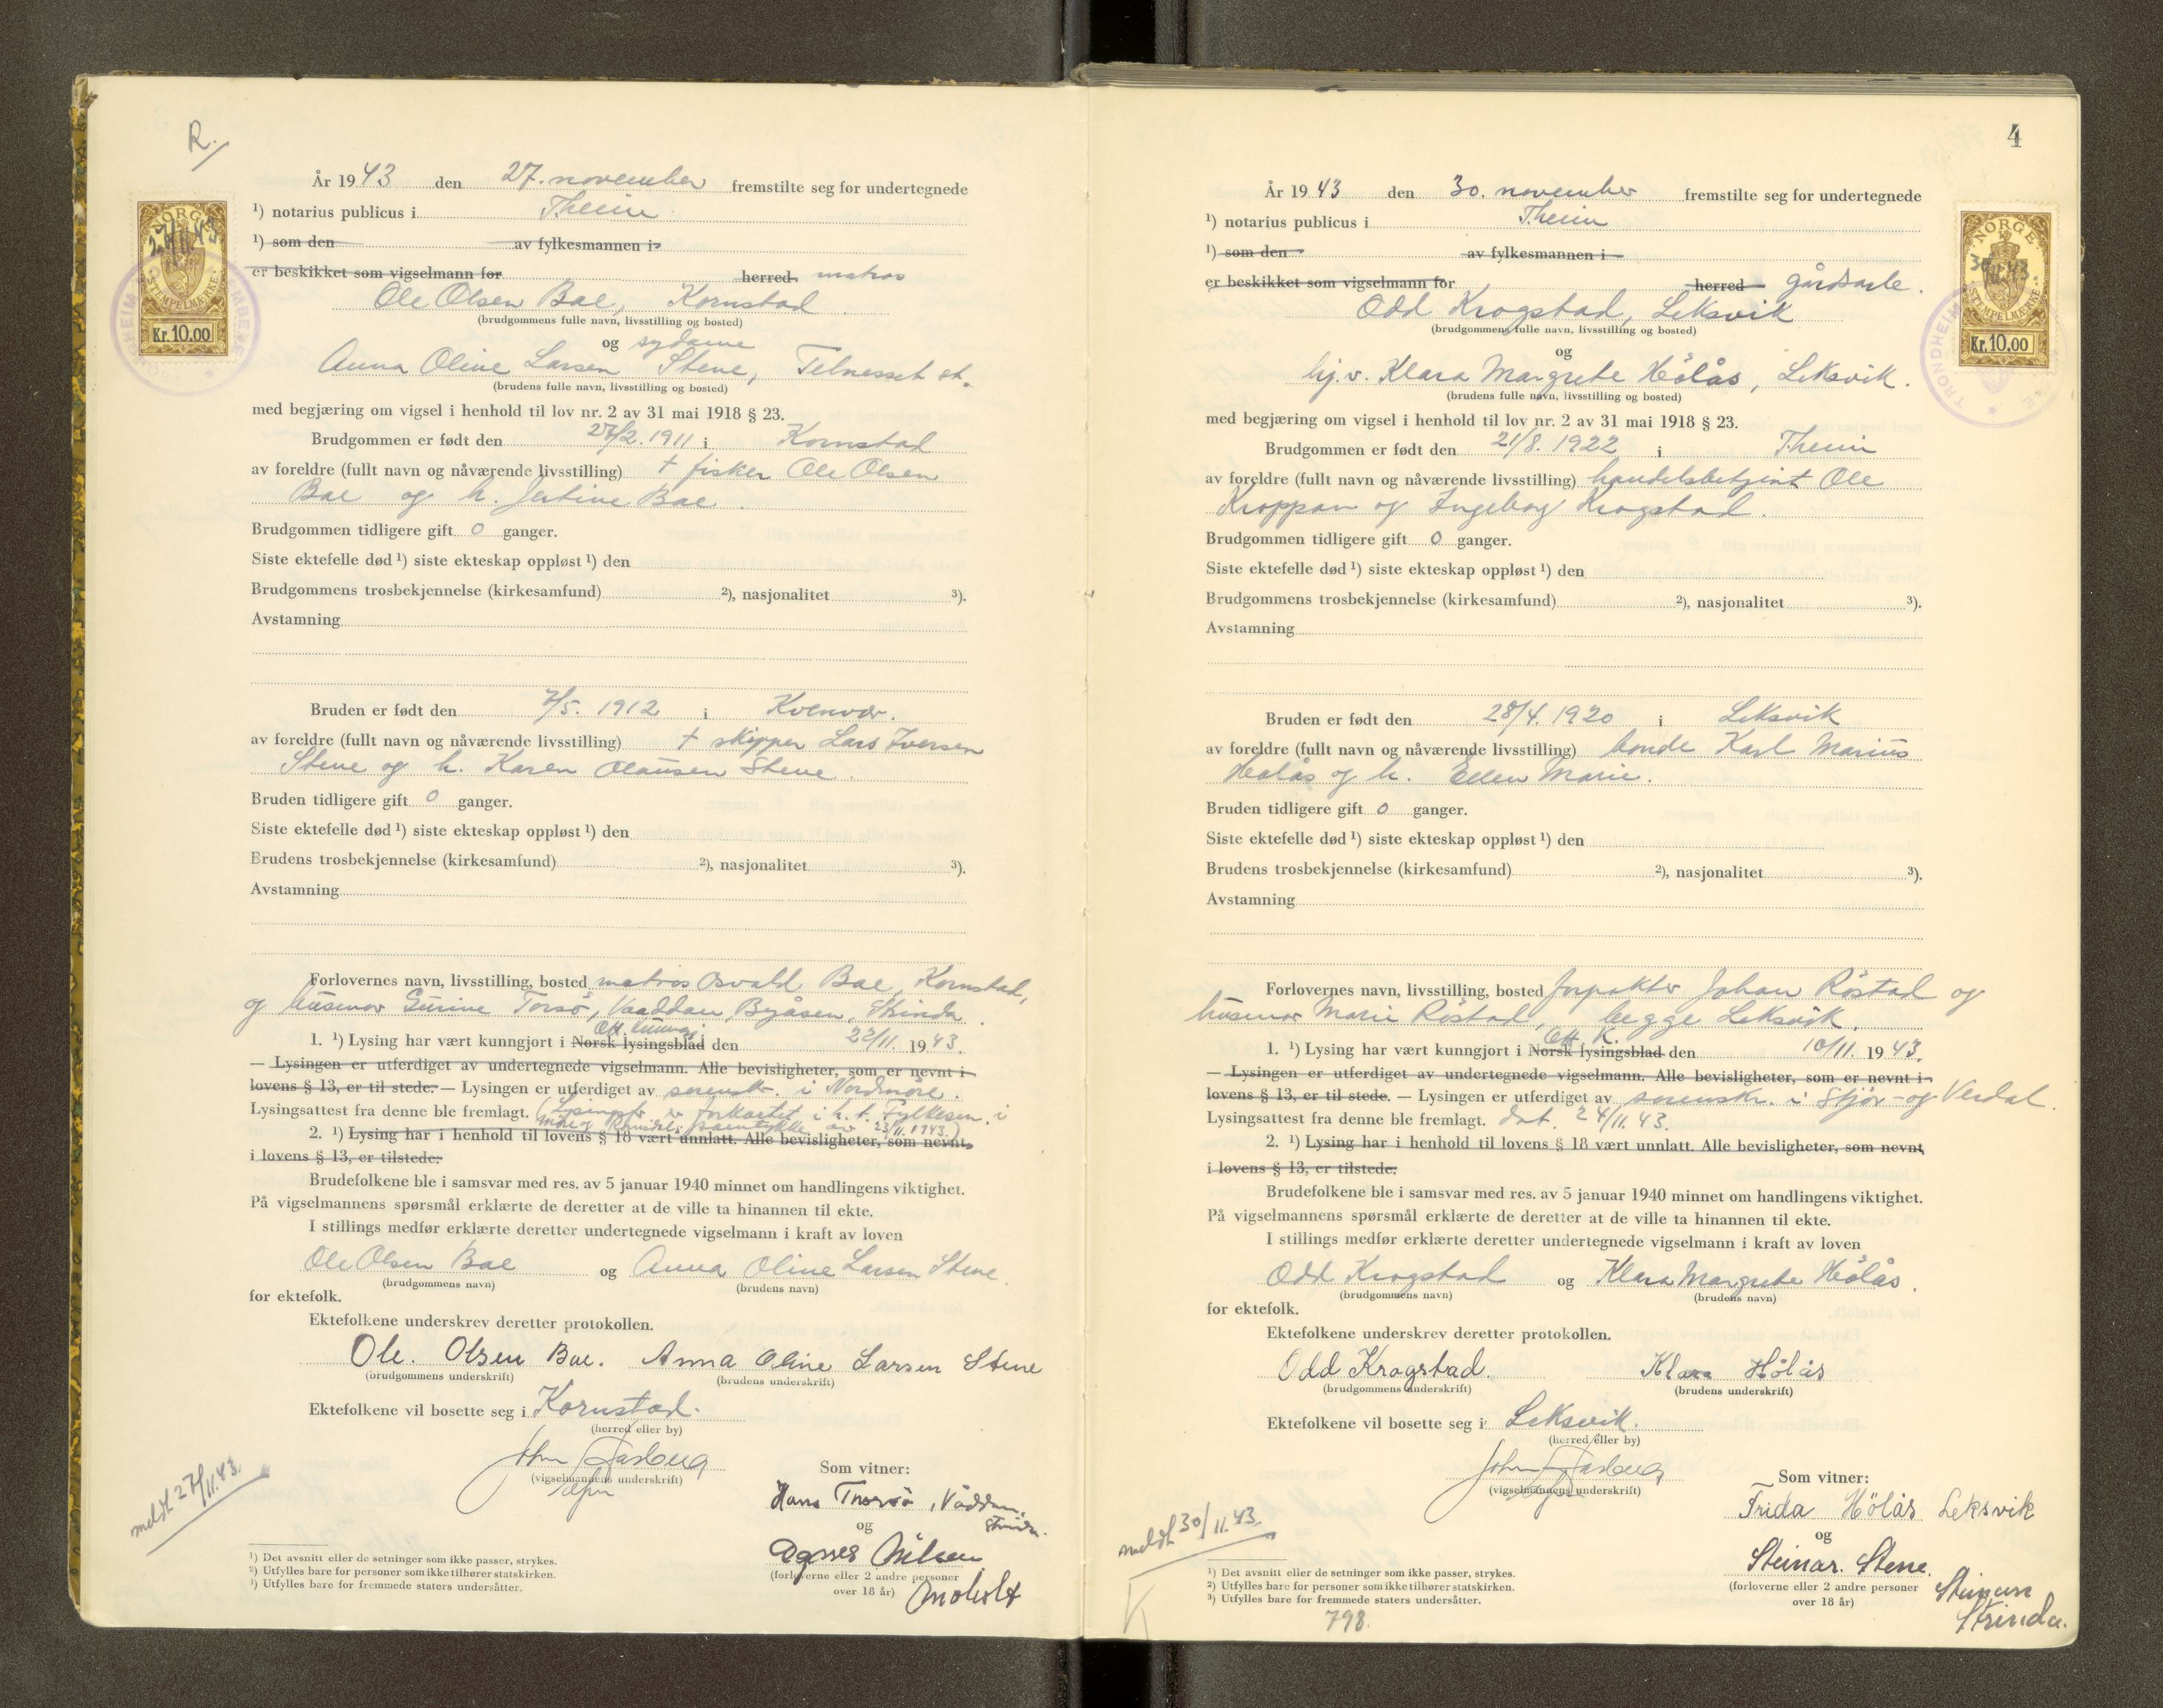 R.
År 1943 den 27. november fremstilte seg for undertegnede
¹) notarius publicus i Theim
¹) som den av fylkesmannen i
er beskikket som vigselmann for herred. matros
Ole Olsen Bae, Kornstad
(brudgommens fulle navn, livsstilling og bosted)
og sydame
Anna Oline Larsen Stene, Telnesset st.
(brudens fulle navn, livsstilling og bosted)
med begjæring om vigsel i henhold til lov nr. 2 av 31 mai 1918 § 23.
Brudgommen er født den 27/2. 1911 i Kornstad
av foreldre (fullt navn og nåværende livsstilling) † fisker Ole Olsen
Bae og h. Jertine Bae.
Brudgommen tidligere gift 0 ganger.
Siste ektefelle død ¹) siste ekteskap oppløst ¹) den
Brudgommens trosbekjennelse (kirkesamfund) ²), nasjonalitet ³).
Avstamning
Bruden er født den 7/5. 1912 i Kvenvær.
av foreldre (fullt navn og nåværende livsstilling) † skipper Lars Iversen
Stene og h. Karen Olausen Stene.
Bruden tidligere gift 0 ganger.
Siste ektefelle død ¹) siste ekteskap oppløst ¹) den
Brudens trosbekjennelse (kirkesamfund) ²), nasjonalitet ³).
Avstamning
Forlovernes navn, livsstilling, bosted matros Osvald Bae, Kornstad,
og husmor Gurine Torsö, Vaaddan, Byåsen, Strinda.
Off. kunngj.
1. ¹) Lysing har vært kunngjort i Norsk lysingsblad den 22/11. 1943.
— Lysingen er utferdiget av undertegnede vigselmann. Alle bevisligheter, som er nevnt i
lovens § 13, er til stede. — Lysingen er utferdiget av sorenskr. i Nordmöre.
Lysingsattest fra denne ble fremlagt. (Lysingsfr. er forkortet i h. t. Fylkesm. i
Möre og Romsdals samtykke av 23/11. 1943.)
2. ¹) Lysing har i henhold til lovens § 18 vært unnlatt. Alle bevisligheter, som nevnt
i lovens § 13, er tilstede.
Brudefolkene ble i samsvar med res. av 5 januar 1940 minnet om handlingens viktighet.
På vigselmannens spørsmål erklærte de deretter at de ville ta hinannen til ekte.
I stillings medfør erklærte deretter undertegnede vigselmann i kraft av loven
Ole Olsen Bae og Anna Oline Larsen Stene.
(brudgommens navn) (brudens navn)
for ektefolk.
Ektefolkene underskrev deretter protokollen.
Ole. Olsen Bae. Anna Oline Larsen Stene
(brudgommens underskrift) (brudens underskrift)
Ektefolkene vil bosette seg i Kornstad.
(herred eller by)
(vigselmannens underskrift)
Som vitner:
Hans Torsö, Våddan,
Strinda.
og
Agnes Nilsen
(forloverne eller 2 andre personer
over 18 år) Moholt
meldt 27/11.43.
¹) Det avsnitt eller de setninger som ikke passer, strykes.
²) Utfylles bare for personer som ikke tilhører statskirken.
³) Utfylles bare for fremmede staters undersåtter.
NORGE
27/11 43
STEMPELMERKE
Kr. 10.00
4
År 1943 den 30. november fremstilte seg for undertegnede
¹) notarius publicus i Theim
¹) som den av fylkesmannen i
er beskikket som vigselmann for herred gårdsarb.
Odd Krogstad, Leksvik
(brudgommens fulle navn, livsstilling og bosted)
og
hj.v. Klara Margrete Hölås, Leksvik.
(brudens fulle navn, livsstilling og bosted)
med begjæring om vigsel i henhold til lov nr. 2 av 31 mai 1918 § 23.
Brudgommen er født den 21/8. 1922 i Theim
av foreldre (fullt navn og nåværende livsstilling) handelsbetjent Ole
Kroppan og Ingeborg Krogstad.
Brudgommen tidligere gift 0 ganger.
Siste ektefelle død ¹) siste ekteskap oppløst ¹) den
Brudgommens trosbekjennelse (kirkesamfund) ²), nasjonalitet ³).
Avstamning
Bruden er født den 28/4. 1920 i Leksvik
av foreldre (fullt navn og nåværende livsstilling) bonde Karl Marius
Hölås og h. Ellen Marie.
Bruden tidligere gift 0 ganger.
Siste ektefelle død ¹) siste ekteskap oppløst ¹) den
Brudens trosbekjennelse (kirkesamfund) ²), nasjonalitet ³).
Avstamning
Forlovernes navn, livsstilling, bosted forpakter Johan Röstad og
husmor Marie Röstad, begge Leksvik.
Off. K.
1. ¹) Lysing har vært kunngjort i Norsk lysingsblad den 10/11. 1943.
— Lysingen er utferdiget av undertegnede vigselmann. Alle bevisligheter, som er nevnt i
lovens § 13, er til stede. — Lysingen er utferdiget av sorenskr. i Stjör- og Verdal.
Lysingsattest fra denne ble fremlagt. dat. 24/11. 43.
2. ¹) Lysing har i henhold til lovens § 18 vært unnlatt. Alle bevisligheter, som nevnt,
i lovens § 13, er tilstede.
Brudefolkene ble i samsvar med res. av 5 januar 1940 minnet om handlingens viktighet.
På vigselmannens spørsmål erklærte de deretter at de ville ta hinannen til ekte.
I stillings medfør erklærte deretter undertegnede vigselmann i kraft av loven
Odd Krogstad og Klara Margrete Hölås.
(brudgommens navn) (brudens navn)
for ektefolk.
Ektefolkene underskrev deretter protokollen.
Odd Krogstad. Klara Hölås
(brudgommens underskrift) (brudens underskrift)
Ektefolkene vil bosette seg i Leksvik.
(herred eller by)
(vigselmannens underskrift)
Som vitner:
Frida Hölås Leksvik
og
Steinar. Stene.
(forloverne eller 2 andre personer
over 18 år)
Strinda.
meldt 30/11.43.
K
¹) Det avsnitt eller de setninger som ikke passer, strykes.
²) Utfylles bare for personer som ikke tilhører statskirken.
³) Utfylles bare for fremmede staters undersåtter.
798.
NORGE
30/11 43
STEMPELMERKE
Kr. 10.00
TRONDHEIM